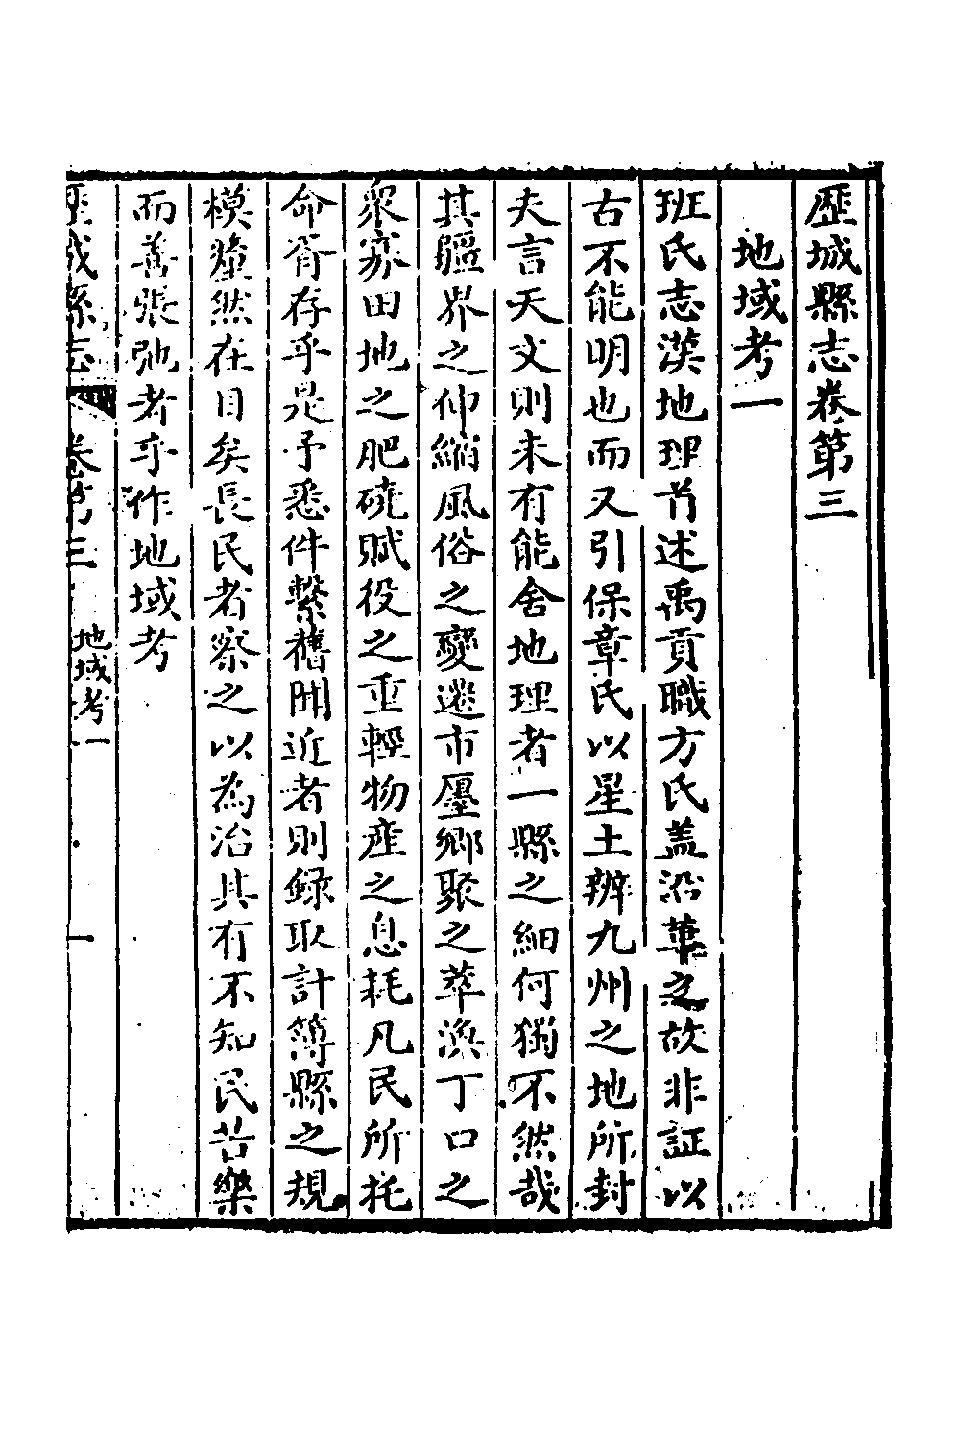 歷城縣志卷第三
地域考一
班氏志漢地理首述禹貢職方氏蓋沿革之故非証以
古不能明也而又引保章氏以星土辨九州之地所封
夫言天文則未有能舍地理者一縣之細何獨不然哉
其疆界之伸縮風俗之變遷市廛鄉聚之萃渙丁口之
衆寡田地之肥磽賦役之重輕物產之息耗凡民所托
命胥存乎是予悉件繫舊聞近者則錄取計簿縣之規
模釐然在目矣長民者察之以為治具有不知民苦樂
而善張弛者乎作地域考
歷城縣志 卷第三 地域考一 一